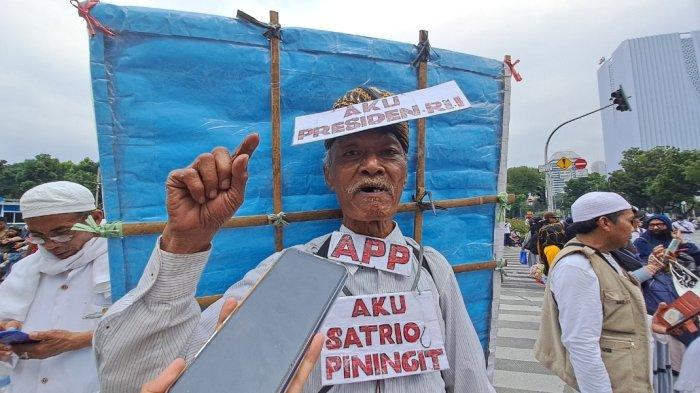 AKU
PRESIDEN.RI.1
APP
AKU
SATRIO
PININGIT